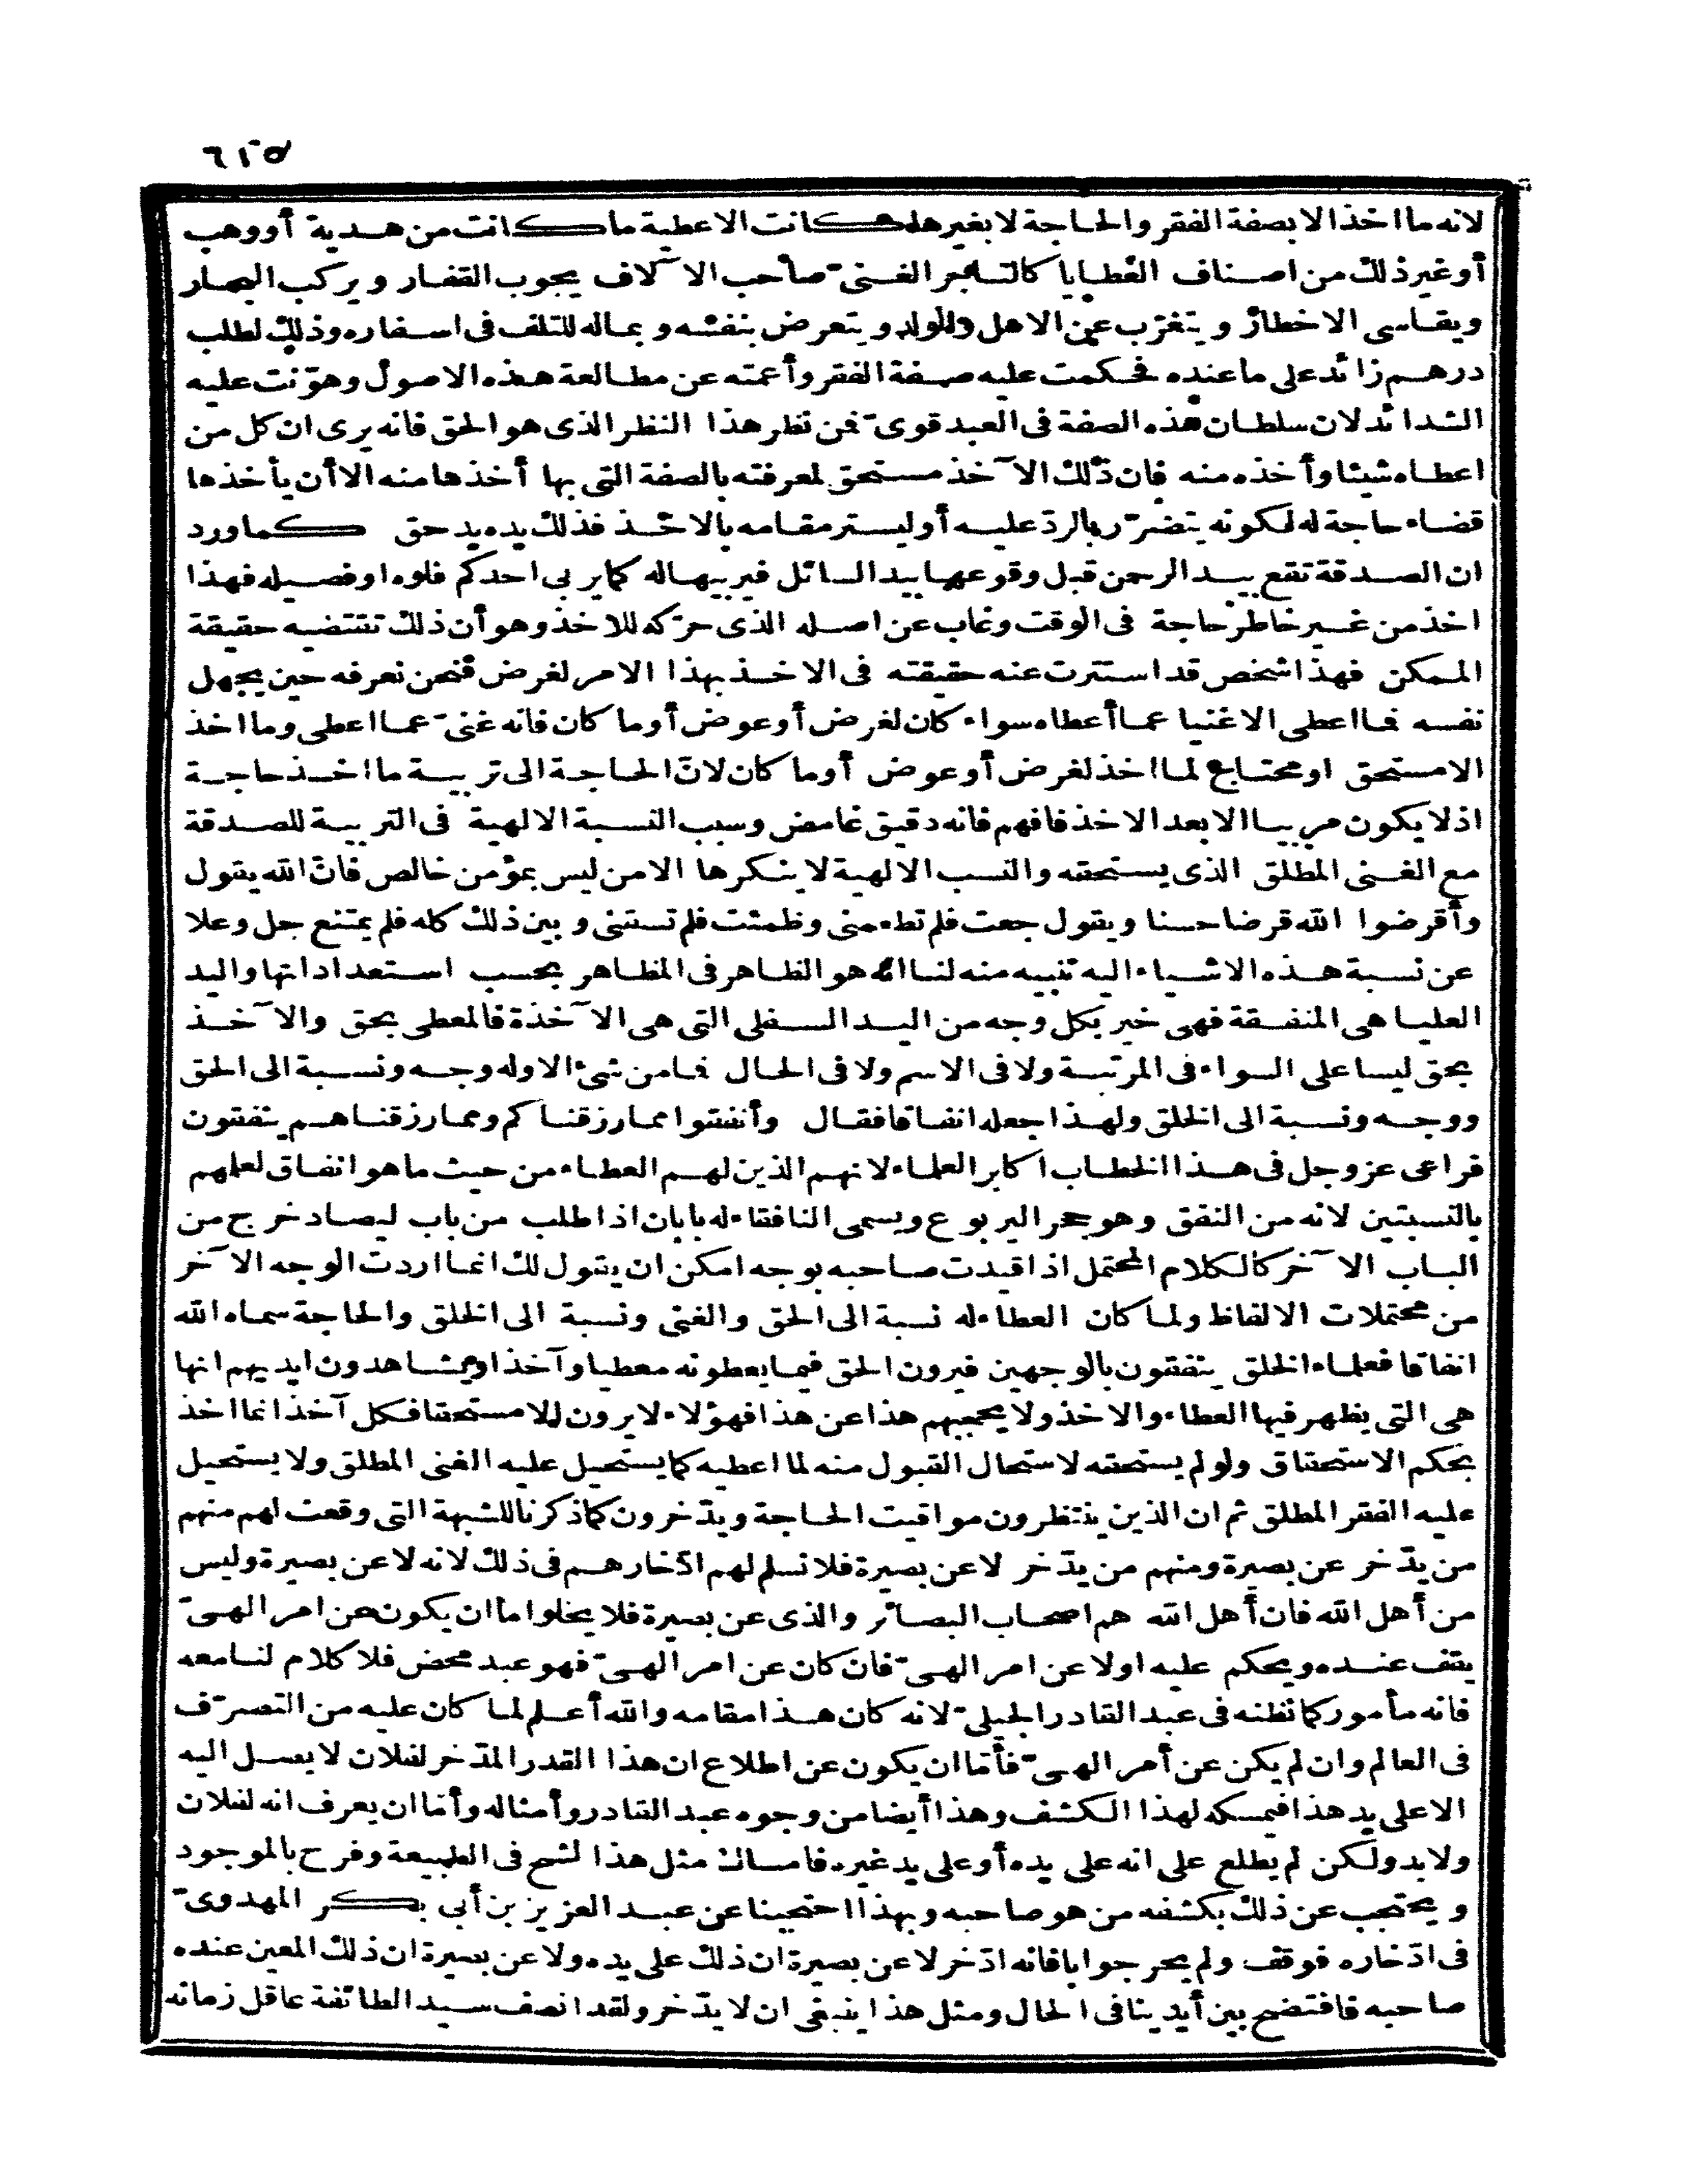 ٦١٥
لانه ما اخذ الا بصفة الفقر والحاجة لا بغيرها كانت الاعطية ما كانت من هدية أو وهب
أو غير ذلك من اصناف العطايا كالتاجر الغنىّ صاحب الآلاف يجوب القفار ويركب البحار
ويقاسى الاخطار ويتغرّب عن الاهل والولد ويتعرض بنفسه وبماله للتلف فى اسفاره وذلك لطلب
درهم زائد على ما عنده فحكمت عليه صفة الفقر وأعمته عن مطالعة هذه الاصول وهوّنت عليه
الشدائد لان سلطان هذه الصفة فى العبد قوىّ فمن نظر هذا النظر الذى هو الحق فانه يرى ان كل من
اعطاه شيئا وأخذه منه فان ذلك الآخذ مستحق لمعرفته بالصفة التى بها أخذها منه الا أن يأخذها
قضاء حاجة له لكونه يتضرّر بالردّ عليه أو ليستر مقامه بالاخذ فذلك يده يد حق كما ورد
ان الصدقة تقع بيد الرحمن قبل وقوعها بيد السائل فيربيها له كما يربى احدكم فلوه او فصيله فهذا
اخذ من غير خاطر حاجة فى الوقت وغاب عن اصله الذى حرّكه للاخذ وهو أن ذلك تقتضيه حقيقة
الممكن فهذا شخص قد استترت عنه حقيقته فى الاخذ بهذا الامر لغرض فنحن نعرفه حين يجهل
نفسه فما اعطى الا غنيا عما أعطاه سواء كان لغرض أو عوض أو ما كان فانه غنىّ عما اعطى وما اخذ
الا مستحق او محتاج لما اخذ لغرض أو عوض أو ما كان لانّ الحاجة الى تربية ما اخذ حاجة
اذ لا يكون مربيا الا بعد الاخذ فافهم فانه دقيق غامض وسبب النسبة الالهية فى التربية للصدقة
مع الغنى المطلق الذى يستحقه والنسب الالهية لا ينكرها الا من ليس بمؤمن خالص فانّ الله يقول
وأقرضوا الله قرضا حسنا ويقول جعت فلم تطعمنى وظمئت فلم تسقنى وبين ذلك كله فلم يمتنع جل وعلا
عن نسبة هذه الاشياء اليه تنبيه منه لنا انه هو الظاهر فى المظاهر بحسب استعداداتها واليد
العليا هى المنفقة فهى خير بكل وجه من اليد السفلى التى هى الآخذة فالمعطى بحق والآخذ
بحق ليسا على السواء فى المرتبة ولا فى الاسم ولا فى الحال فما من شئ الا وله وجه ونسبة الى الحق
ووجه ونسبة الى الخلق ولهذا جعله انفاقا فقال وأنفقوا مما رزقناكم ومما رزقناهم ينفقون
فراعى عز وجل فى هذا الخطاب اكابر العلماء لانهم الذين لهم العطاء من حيث ما هو انفاق لعلمهم
بالنسبتين لانه من النفق وهو جحر اليربوع ويسمى النافقاء له بابان اذا طلب من باب ليصاد خرج من
الباب الآخر كالكلام المحتمل اذا قيدت صاحبه بوجه امكن ان يقول لك انما اردت الوجه الآخر
من محتملات الالفاظ ولما كان العطاء له نسبة الى الحق والغنى ونسبة الى الخلق والحاجة سماه الله
انفاقا فعلماء الخلق ينفقون بالوجهين فيرون الحق فيما يعطونه معطيا وآخذا ويشاهدون ايديهم انها
هى التى يظهر فيها العطاء والاخذ ولا يحجبهم هذا عن هذا فهؤلاء لا يرون الا مستحقا فكل آخذ انما اخذ
بحكم الاستحقاق ولو لم يستحقه لاستحال القبول منه لما اعطيه كما يستحيل عليه الغنى المطلق ولا يستحيل
عليه الفقر المطلق ثم ان الذين ينتظرون مواقيت الحاجة ويدّخرون كما ذكرنا للشبهة التى وقعت لهم منهم
من يدّخر عن بصيرة ومنهم من يدّخر لا عن بصيرة فلا نسلم لهم ادّخارهم فى ذلك لانه لا عن بصيرة وليس
من أهل الله فان أهل الله هم اصحاب البصائر والذى عن بصيرة فلا يخلوا ما ان يكون عن امر الهىّ
يقف عنده ويحكم عليه اولا عن امر الهىّ فان كان عن امر الهىّ فهو عبد محض فلا كلام لنا معه
فانه مأمور كما نظنه فى عبد القادر الجيلىّ لانه كان هذا مقامه والله أعلم لما كان عليه من التصرّف
فى العالم وان لم يكن عن أمر الهىّ فأمّا ان يكون عن اطلاع ان هذا القدر المدّخر لفلان لا يصل اليه
الا على يد هذا فيمسكه لهذا الكشف وهذا أيضا من وجوه عبد القادر وأمثاله وأمّا ان يعرف انه لفلان
ولا بد ولكن لم يطلع على انه على يده أو على يد غيره فامساك مثل هذا لشح فى الطبيعة وفرح بالموجود
ويحتجب عن ذلك بكشفه من هو صاحبه وبهذا احتججنا عن عبد العزيز بن أبى بكر المهدوىّ
فى ادّخاره فوقف ولم يحر جوابا فانه ادّخر لا عن بصيرة ان ذلك على يده ولا عن بصيرة ان ذلك المعين عنده
صاحبه فافتضح بين أيدينا فى الحال ومثل هذا ينبغى ان لا يدّخر ولقد انصف سيد الطائفة عاقل زمانه